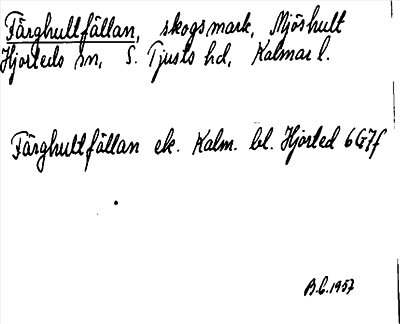 Färghultfällan, skogsmark, Mjöshult
Hjorteds sn, S. Tjusts hd, Kalmar l.
Färghultfällan ek. Kalm. bl. Hjorted 6G7f
B.C. 1957